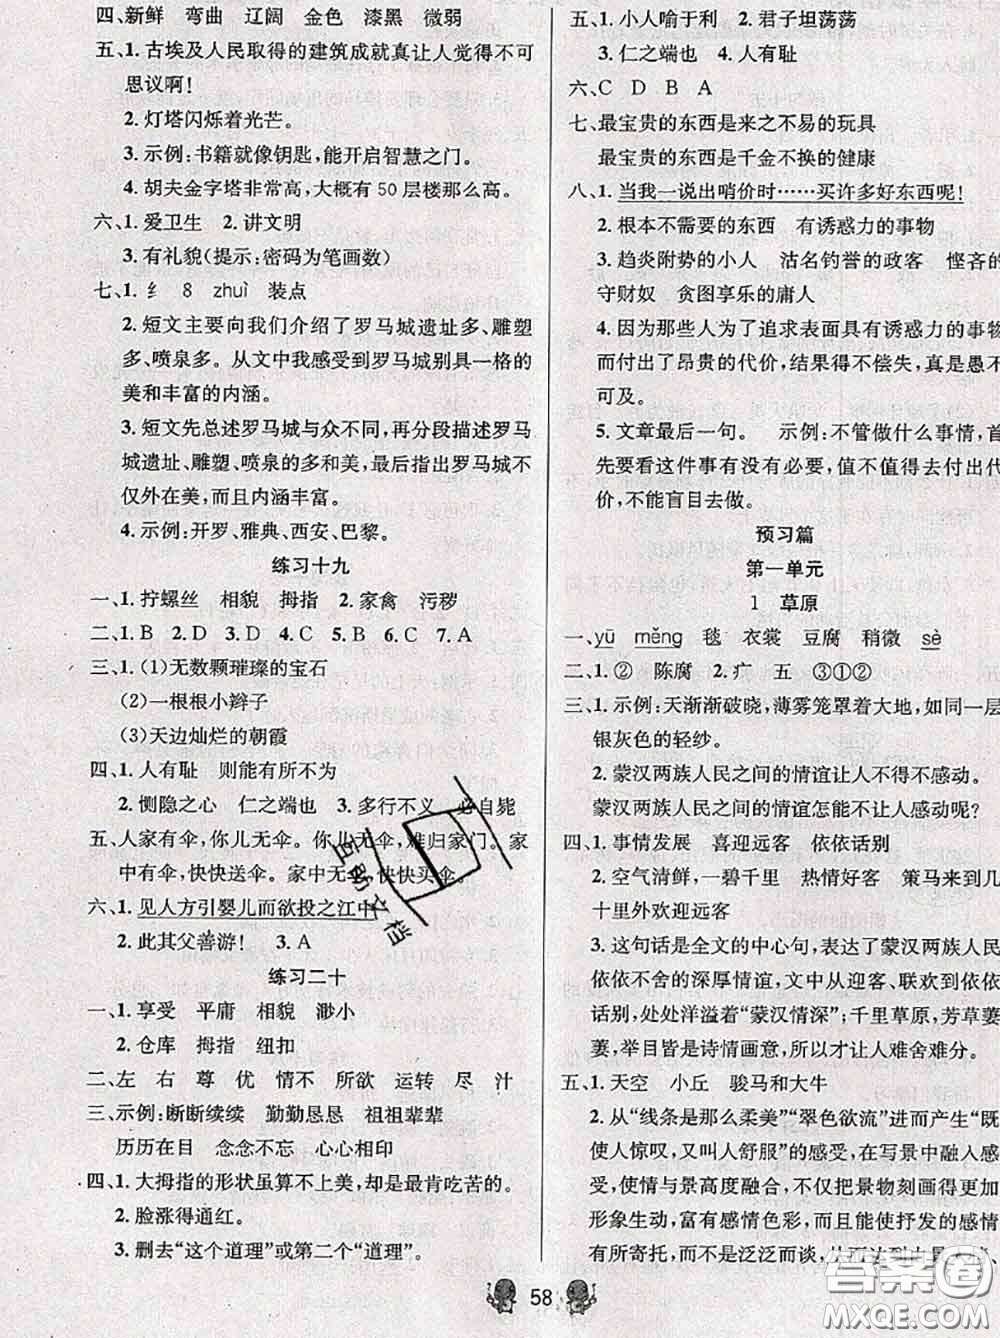 四、新鲜 弯曲 辽阔 金色 漆黑 微弱
五、1. 古埃及人民取得的建筑成就真让人觉得不可
思议啊!
2. 灯塔闪烁着光芒。
3. 示例:书籍就像钥匙,能开启智慧之门。
4. 胡夫金字塔非常高,大概有50层楼那么高。
六、1. 爱卫生 2. 讲文明
3. 有礼貌(提示:密码为笔画数)
七、1. 纟 8 zhuì 装点
2. 短文主要向我们介绍了罗马城遗址多、雕塑
多、喷泉多。从文中我感受到罗马城别具一格的
美和丰富的内涵。
3. 短文先总述罗马城与众不同,再分段描述罗马
城遗址、雕塑、喷泉的多和美,最后指出罗马城不
仅外在美,而且内涵丰富。
4. 示例:开罗、雅典、西安、巴黎。
练习十九
一、1. 拧螺丝 相貌 拇指 2. 家禽 污秽
二、1. B 2. D 3. D 4. C 5. B 6. C 7. A
三、1. (1)无数颗璀璨的宝石
(2)一根根小辫子
(3)天边灿烂的朝霞
四、1. 人有耻 则能有所不为
2. 恻隐之心 仁之端也 3. 多行不义 必自毙
五、人家有伞,你儿无伞。你儿无伞,难归家门。家
中有伞,快快送伞。家中无伞,快快买伞。
六、1. 见人方引婴儿而欲投之江中
2. 此其父善游! 3. A
练习二十
一、1. 享受 平庸 相貌 渺小
2. 仓库 拇指 纽扣
二、左 右 尊 优 情不 所欲 运转 尽 汁
三、示例:断断续续 勤勤恳恳 祖祖辈辈
历历在目 念念不忘 心心相印
四、1. 大拇指的形状虽算不上美,却是最肯吃苦的。
2. 脸涨得通红。
3. 删去“这个道理”或第二个“道理”。
五、1. 小人喻于利 2. 君子坦荡荡
3. 仁之端也 4. 人有耻
六、C D B A
七、最宝贵的东西是来之不易的玩具
最宝贵的东西是千金不换的健康
八、1. 当我一说出哨价时……买许多好东西呢!
2. 根本不需要的东西 有诱惑力的事物
3. 趋炎附势的小人 沽名钓誉的政客 悭吝的
守财奴 贪图享乐的庸人
4. 因为那些人为了追求表面具有诱惑力的事物
而付出了昂贵的代价,结果得不偿失,真是愚不
可及。
5. 文章最后一句。 示例:不管做什么事情,首
先要看这件事有没有必要,值不值得去付出代
价,不能盲目去做。
预习篇
第一单元
1 草原
一、yū měng 毯 衣裳 豆腐 稍微 sè
二、1. ② 陈腐 2. 疒 五 ③①②
三、1. 示例:天渐渐破晓,薄雾笼罩着大地,如同
银灰色的轻纱。
2. 蒙汉两族人民之间的情谊让人不得不感动。
蒙汉两族人民之间的情谊怎能不让人感动呢?
四、1. 事情发展 喜迎远客 依依话别
2. 空气清鲜,一碧千里 热情好客 策马来到几
十里外欢迎远客
3. 这句话是全文的中心句,表达了蒙汉两族人民
依依不舍的深厚情谊,从迎客、联欢到依依
话别,处处洋溢着“蒙汉情深”;千里草原,芳草萋
萋,举目皆是诗情画意,所以才让人难舍难分。
五、1. 天空 小丘 骏马和大牛
2. 从“线条是那么柔美”“翠色欲流”进而产生“既
使人惊叹,又叫人舒服”的感受,在写景中融入感
受,使情与景高度融合,不仅使景物刻画得更
形象生动,富有感情色彩,而且能使抒发的感情
有所寄托,而不是泛泛而谈,
58
互助文档
答案圈
MXQE.COM